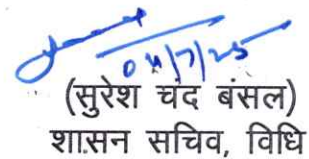 04/7/25
(सुरेश चंद बंसल)
शासन सचिव, विधि